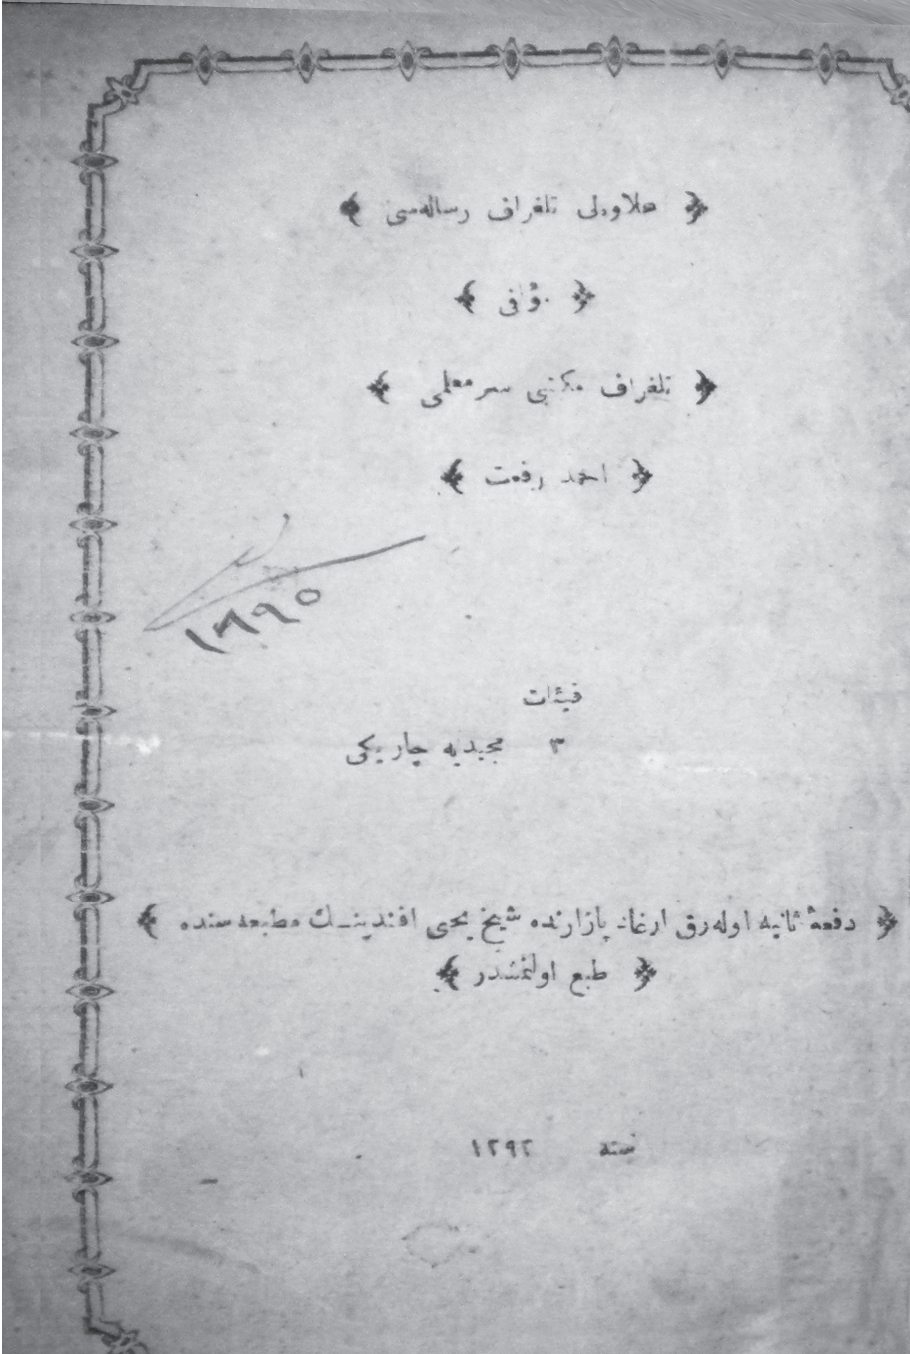 ﴿ علاوه‌لی تلغراف رساله‌سی ﴾
﴿ مؤلفی ﴾
﴿ تلغراف مكتبی سرمعلمی ﴾
﴿ احمد رفعت ﴾
١٢٩٥
فیئات
٣ مجیدیه چاریكی
﴿ دفعهٔ ثانیه اوله‌رق ارغاد پازارنده شیخ یحیی افندینــك مطبعه سنده ﴾
﴿ طبع اولنمشدر ﴾
سنه ١٢٩٢